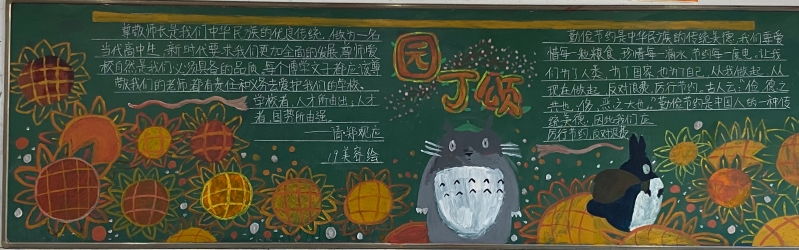 尊敬师长是我们中华民族的优良传统,做为一名
当代高中生,新时代要求我们更加全面的发展,尊师爱
校自然是我们必须具备的品质,每个博学文子都应该尊
敬我们的老师,都有责任和义务去爱护我们的学校。
学校者,人才所由出,人才
者,国势所由强。
郑观应
19美容绘
园丁颂
勤俭节约是中华民族的传统美德,我们要爱
惜每一粒粮食,珍惜每一滴水,节约每一度电,让我
们为了人类,为了国家,也为了自己,从我做起,从
现在做起,反对浪费,厉行节约,古人云:"俭,德之
共也,侈,恶之大也。"勤俭节约是中国人的一种传
统美德,因此我们应
厉行节约,反对浪费